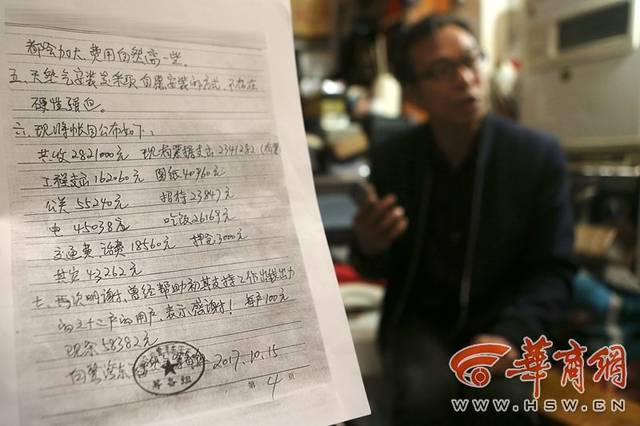 都会加大费用自然高一些。
五、天然气安装是采取自愿安装的方式，不存在
硬性强迫。
六、现将帐目公布如下：
共收2821000元 现有票据支出234122
工程支出162060元 图纸40360元
公关55240元 招待23847元
45038元 吃饭26169元
交通费、话费18560元 押金3000元
共定43262元
七、再次明谢，曾经帮助和其支持工作出钱出力
的三十二户的用户，表示感谢！每户100元
现余58382元
筹备组 2017.10.15
第4页
华商网
WWW.HSW.CN